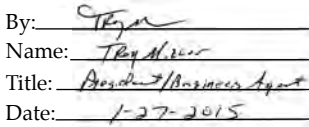 By: Troy M
Name: Troy M.
Title: President/Business Agent
Date: 1-27-2015